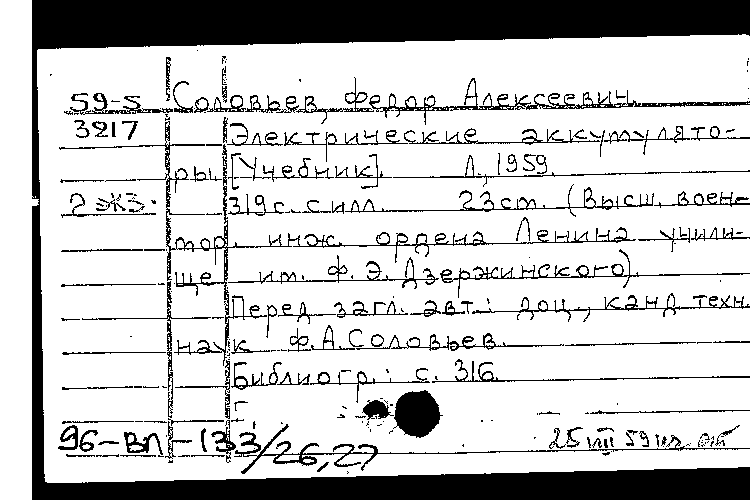 59-5 Соловьев, Федор Алексеевич.
3217 Электрические аккумулято-
ры. [Учебник]. Л., 1959.
2 экз. 319 с. с илл. 23 см. (Высш. воен-
мор. инж. ордена Ленина учили-
ще им. Ф. Э. Дзержинского).
Перед загл. авт.: доц., канд. техн.
наук Ф.А.Соловьев.
Библиогр.: с. 316.
Г
96-ВЛ-133/26,27 25 VIII 59